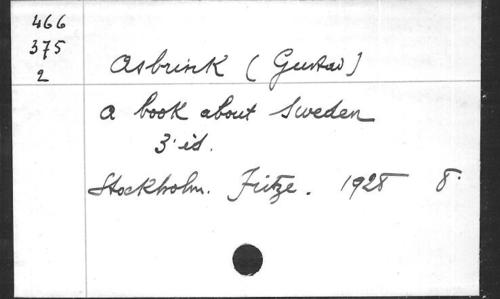 466
375
2
Asbrink (Gustav)
A book about Sweden
3' éd.
Stockholm. Fritze. 1928 8°